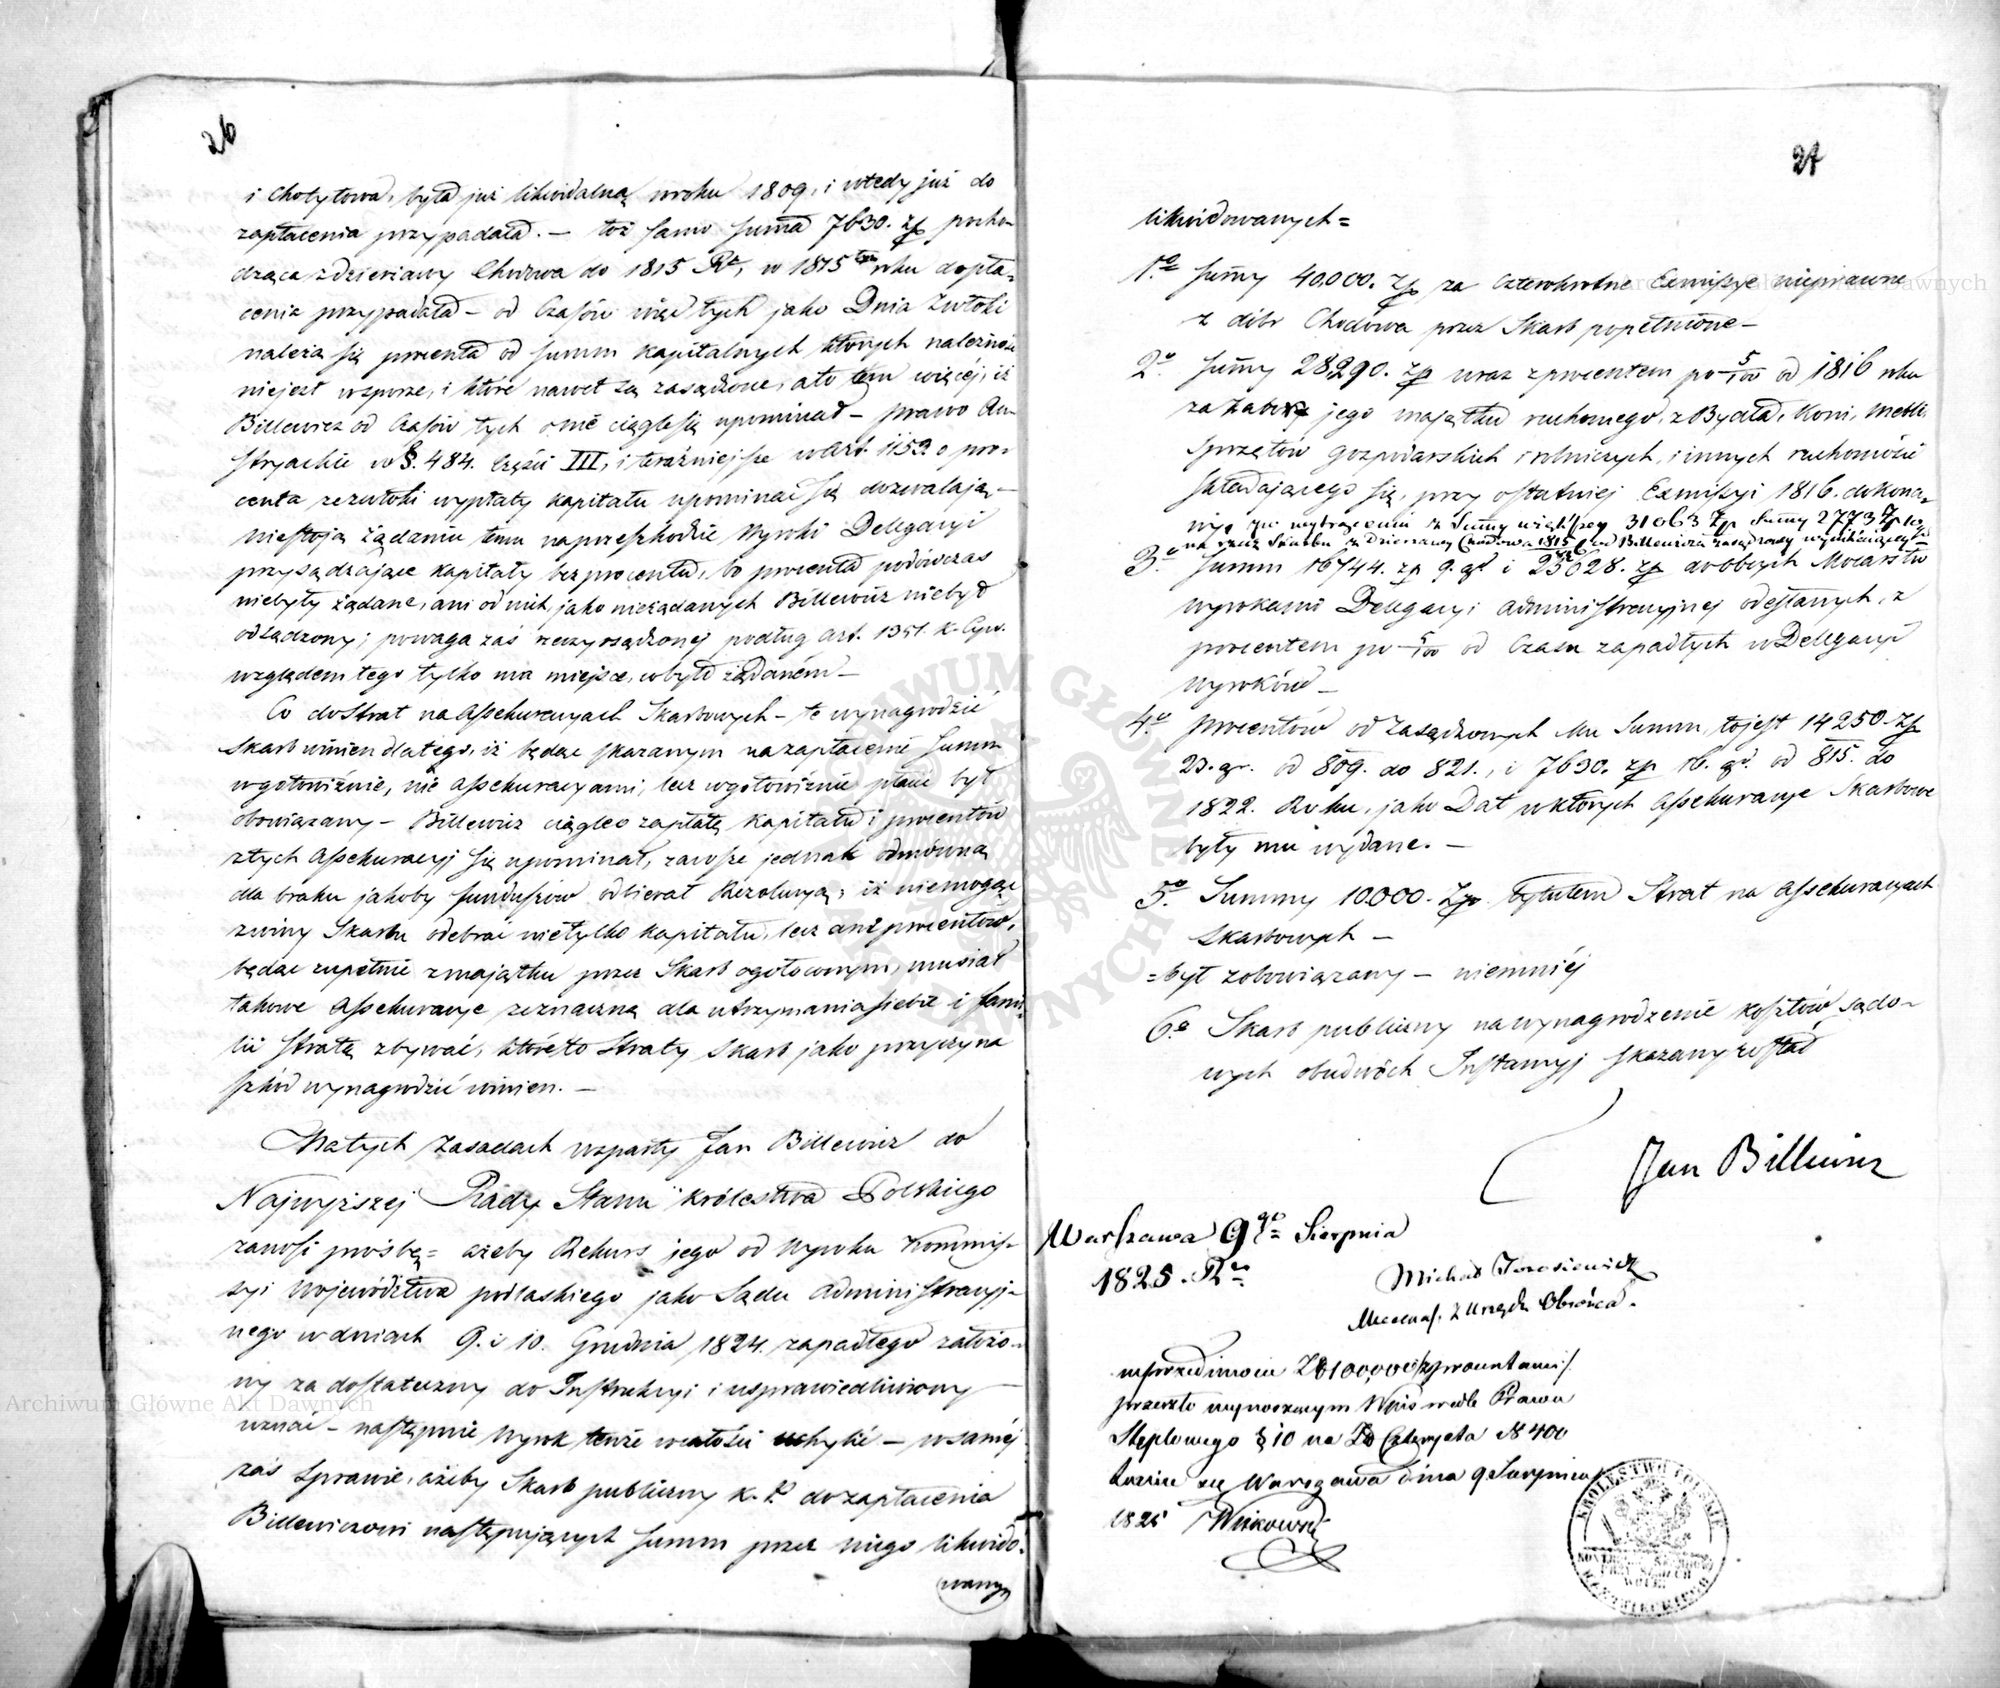 26
i Chotytowa, była już likwidalną wroku 1809, i wtedy już do
zapłacenia przypadała. — toż samo Summa 7630. zp pocho-
dząca z dzierżawy Chodowa do 1815 Rku, w 1815 tym roku dopła-
cenia przypadała — od Czasów więc tych jako Dnia Zwłoki
należą się procenta od summ kapitalnych których należność
niejest wsporze, i które nawet są zasądzone, a to tem więcej, iż
Billewicz od Czasów tych o nie ciągle się upominał — prawo Au-
stryackie w §. 484. Części III, i teraźniejsze w Art. 1153. o pro-
centa zezwłoki wypłaty kapitału upominać się dozwalają —
niestoją żądaniu temu naprzeszkodzie Wyroki Delegacyi
przysądzające kapitały bez procentu, bo procenta podówczas
niebyły żądane, ani od nich, jako nieżądanych Billewicz niebył
odsądzony; powaga zaś rzeczy osądzonej podług art. 1351. k. Cyw.
względem tego tylko ma miejsce, co było żądaném —
Co do Strat na Assekuracyach Skarbowych — te wynagrodzić
Skarb winien dla tego, iż będąc skazanym na zapłacenie summ
wgotowiźnie, nie Assekuracyami, lecz wgotowiźnie płacić był
obowiązany — Billewicz ciągle o zapłatę kapitału i procentów
ztych Assekuracyj się upominał, zawsze jednak odmówną
dla braku jakoby funduszów odbierał Rezolucyą, iż niemogąc
zwiny Skarbu odebrać nietylko kapitału, lecz ani procentów,
będąc zupełnie zmajątku przez Skarb ogołoconym, musiał
takowe Assekuracye zeznaczną dla utrzymania siebie i fami-
lii stratą zbywać, któreto straty Skarb jako przyczyna
szkod wynagrodzić winien. —
Na tych zasadach wsparty Jan Billewicz do
Najwyższej Rady Stanu Królestwa Polskiego
zanosi prośbę = ażeby Rekurs jego od Wyroku Kommis-
syi Województwa podlaskiego jako Sądu Administracyj-
nego w dniach 9. i 10. Grudnia 1824. zapadłego założo-
ny za dostateczny do Instrukcyi i usprawiedliwiony —
uznać — następnie Wyrok tenże w całości uchylić — w samej
zaś Sprawie, ażeby Skarb publiczny K. P. do zapłacenia
Billewiczowi następujących summ przez niego likwido-
wanych
27
likwidowanych =
1o Summy 40,000. Zp za czterokrotne Exmissye nieprawne
z dóbr Chodowa przez Skarb popełnione —
2o Summy 28,290. zp wraz z procentem po 5/100 od 1816 roku
za zabor jego majątku ruchomego, z Bydła, Koni, Mebli
Sprzętów gospodarskich i rolniczych, i innych ruchomości
składającego się, przy ostatniej Exmissyi 1816. dokona-
nyo po wytrąceniu z Summy większey 31063 Zp Summy 2773 Zp
na rzecz Skarbu z Dzierzawy Chodowa 1815/816 od Billewicza zasądzoney wynikaiącey
3o Summ 16744. zp 9. gr i 25628. zp do obcych Mocarstw
wyrokami Delegacyi Administracyjnej odesłanych, z
procentem po 5/100 od Czasu zapadłych w Delegacyi
wyroków —
4o procentów od zasądzonych Mu Summ, tojest 14250. Zp
23. gr. od 809. do 821., i 7630. zp 16. gr. od 815. do
1822. Roku, jako Dat w których Assekuracye Skarbowe
były mu wydane. —
5o Summy 10,000. Zp. tytułem Strat na Assekuracyach
Skarbowych —
= był zobowiązany — niemniéj
6o Skarb publiczny na wynagrodzenie kosztów Sądo-
wych obudwóch Instancyj skazany został
Jan Billewicz
Warszawa 9go Sierpnia
1825. Rku
Michał Jarosiewicz
Mecenas. z Urzędu Obrońca.
w przedmiocie Zł 100,000 /z procentami/
przeszło wynoszącym Wpis wedle Prawa
Stęplowego § 10 na Zł Czterysta N 400
Warszawa dnia 9 Sierpnia
1825 Witkowski
KRÓLESTWO POLSKIE
Archiwum Główne Akt Dawnych
Archiwum Główne Akt Dawnych
ARCHIWUM GŁÓWNE AKT DAWNYCH